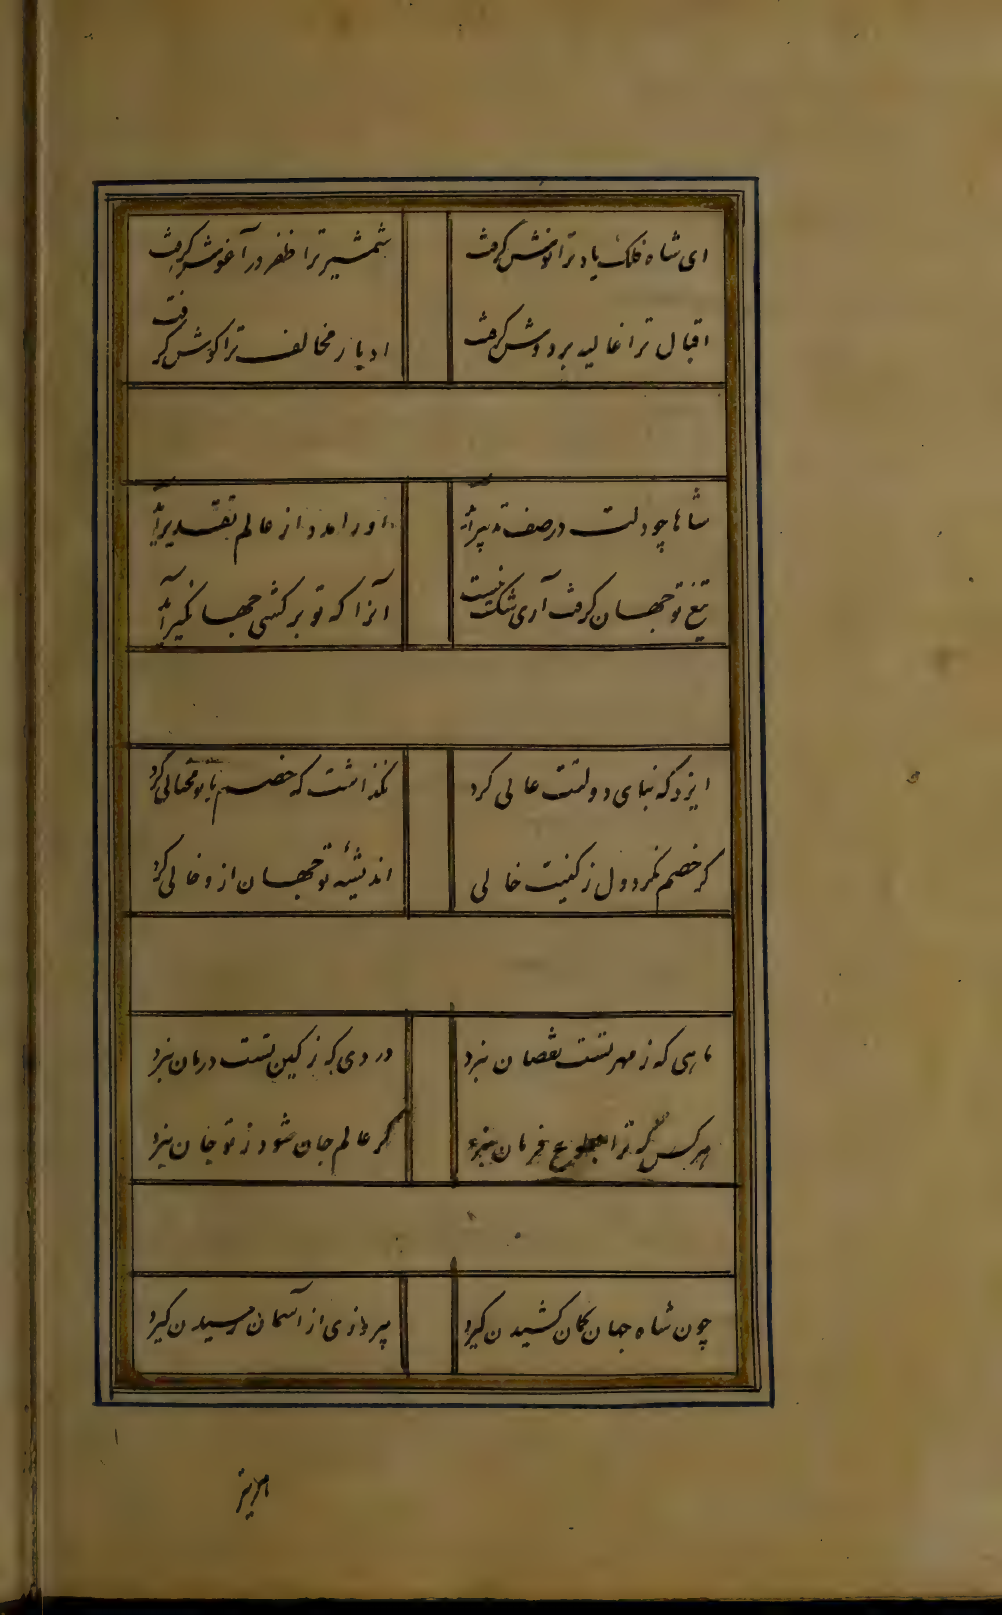 ای شاه فلک یاد ترا نوش گرفت
شمشیر ترا ظفر در آغوش گرفت
اقبال ترا غالیه بر دوش گرفت
ادبار مخالف ترا گوش گرفت
شاها چو دلت در صف تدبیر آید
او را مدد از عالم تقدیر آید
تیغ تو جهان گرفت آری شک نیست
آنرا که تو برکشی جهانگیر آید
ایزد که بنای دولتت عالی کرد
نگذاشت که خصم با تو محالی کرد
گر خصم نکرد دل ز کینت خالی
اندیشهٔ تو جهان ازو خالی کرد
ماهی که ز مهر تست نقصان نبرد
دردی که ز کین تست درمان نبرد
هر کس که ترا بطوع فرمان نبرد
گر عالم جان شود ز تو جان نبرد
چون شاه جهان کمان کشیدن گیرد
پیروزی از آسمان رسیدن گیرد